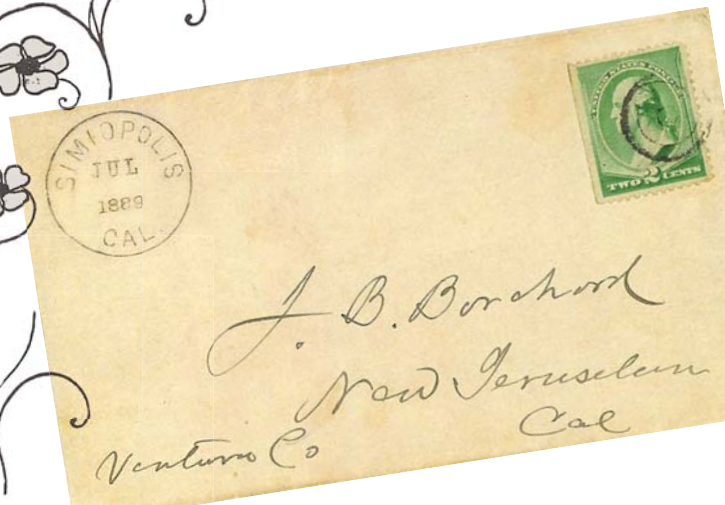 SIMIOPOLIS
JUL
1889
CAL.
UNITED STATES POSTAGE
TWO 2 CENTS
J. B. Borchard
New Jerusalem
Cal
Ventura Co